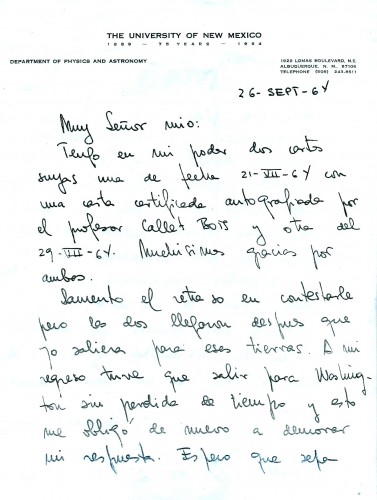 THE UNIVERSITY OF NEW MEXICO
1889 - 75 YEARS - 1964
DEPARTMENT OF PHYSICS AND ASTRONOMY
1920 LOMAS BOULEVARD, N.E.
ALBUQUERQUE, N. M., 87106
TELEPHONE (505) 243-8611
26-SEPT-64
Muy Señor mio:
Tengo en mi poder dos cartas
suyas una de fecha 21-VII-64 con
una carta certificada autografiada por
el profesor Callet Bois y otra del
29-VIII-64. Muchisimas gracias por
ambas.
Lamento el retraso en contestarle
pero las dos llegaron despues que
yo saliera para esas tierras. A mi
regreso tuve que salir para Washing-
ton sin perdida de tiempo y esto
me obligó de nuevo a demorar
mi respuesta. Espero que sepa